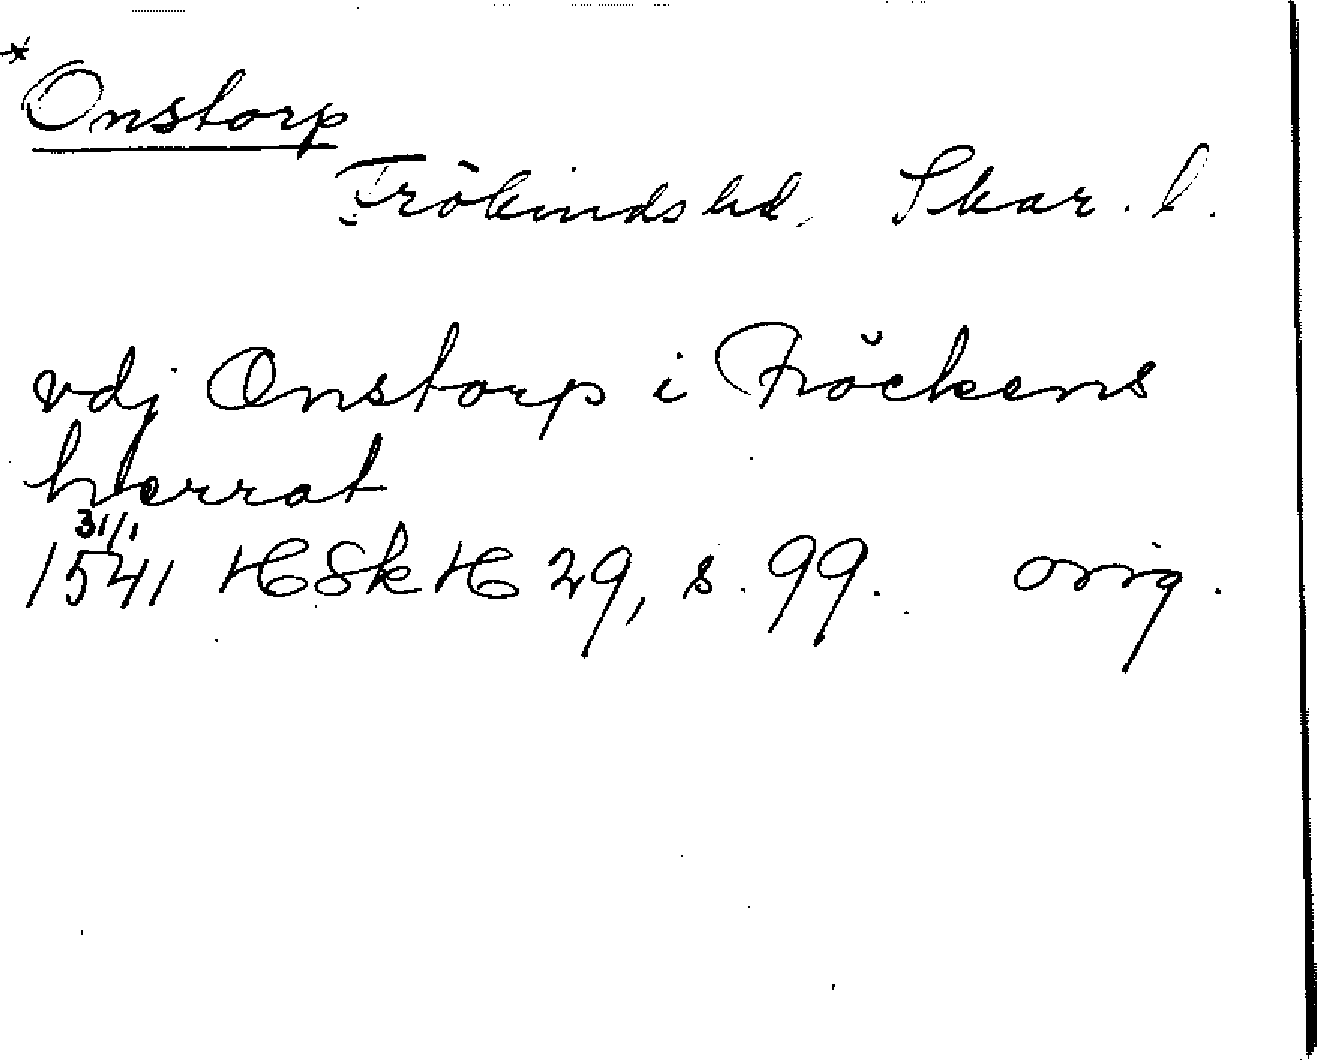 *Onstorp
Frökinds hd. Skar. l.
vdj Onstorp i Frŏckens
hierrat
31/1
1541 HSkH 29, s. 99. orig.